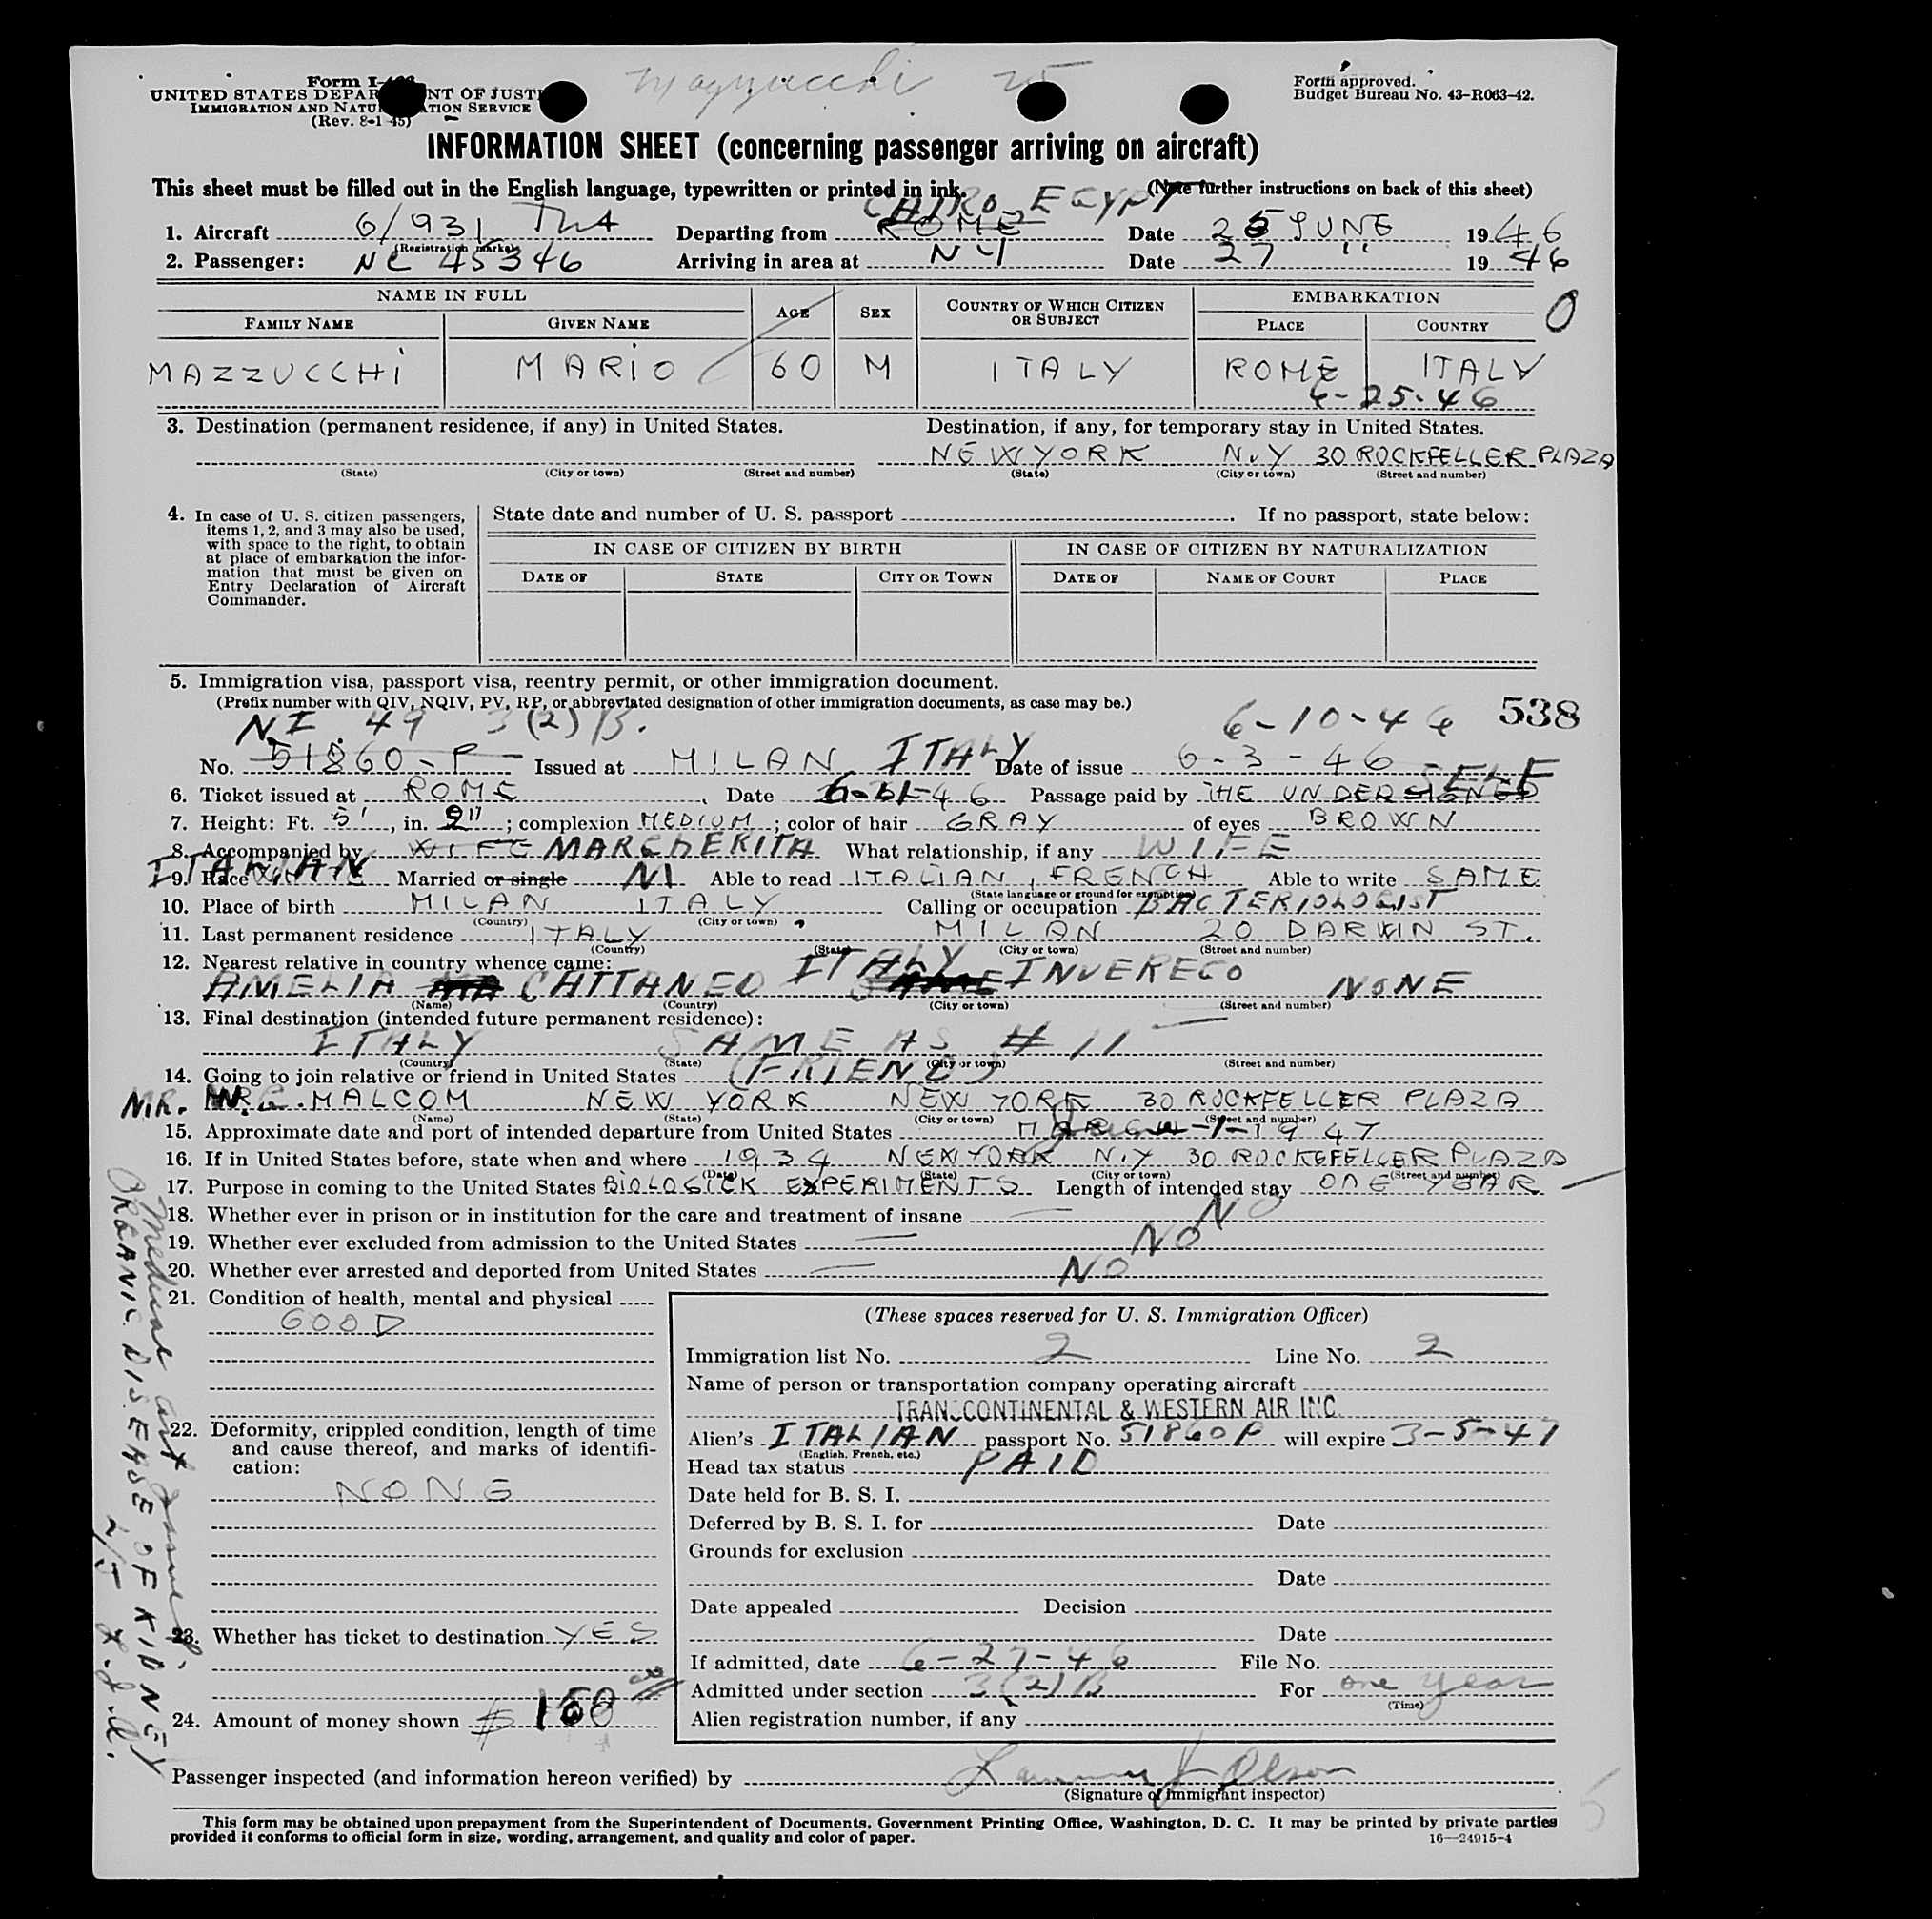 Mazzucchi 25
Form I-466
UNITED STATES DEPARTMENT OF JUSTICE
IMMIGRATION AND NATURALIZATION SERVICE
(Rev. 8-1-45)
Form approved.
Budget Bureau No. 43-R063-42.
INFORMATION SHEET (concerning passenger arriving on aircraft)
This sheet must be filled out in the English language, typewritten or printed in ink. (Note further instructions on back of this sheet)
CAIRO EGYPT
1. Aircraft 6/931 TWA Departing from ROME Date 25 JUNE 1946
(Registration marks)
2. Passenger: NC 45346 Arriving in area at NY Date 27 " 1946
NAME IN FULL AGE SEX COUNTRY OF WHICH CITIZEN OR SUBJECT EMBARKATION 0
FAMILY NAME GIVEN NAME PLACE COUNTRY
MAZZUCCHI MARIO 60 M ITALY ROME ITALY
6-25-46
3. Destination (permanent residence, if any) in United States. Destination, if any, for temporary stay in United States.
NEW YORK N.Y 30 ROCKFELLER PLAZA
(State) (City or town) (Street and number) (State) (City or town) (Street and number)
4. In case of U. S. citizen passengers, items 1, 2, and 3 may also be used, with space to the right, to obtain at place of embarkation the information that must be given on Entry Declaration of Aircraft Commander.
State date and number of U. S. passport . If no passport, state below:
IN CASE OF CITIZEN BY BIRTH IN CASE OF CITIZEN BY NATURALIZATION
DATE OF STATE CITY OR TOWN DATE OF NAME OF COURT PLACE
5. Immigration visa, passport visa, reentry permit, or other immigration document.
(Prefix number with QIV, NQIV, PV, RP, or abbreviated designation of other immigration documents, as case may be.) 538
N.I. 49 3(2)B. 6-10-46
No. 51860-P Issued at MILAN ITALY Date of issue 6-3-46
SELF
6. Ticket issued at ROME, Date 6-21-46 Passage paid by THE UNDERSIGNED
7. Height: Ft. 5', in. 9"; complexion MEDIUM; color of hair GRAY of eyes BROWN
8. Accompanied by WIFE MARGHERITA What relationship, if any WIFE
ITALIAN
9. Race WHITE Married or single M Able to read ITALIAN, FRENCH Able to write SAME
(State language or ground for exemption)
10. Place of birth MILAN ITALY Calling or occupation BACTERIOLOGIST
(Country) (City or town)
11. Last permanent residence ITALY MILAN 20 DARWIN ST.
(Country) (State) (City or town) (Street and number)
12. Nearest relative in country whence came:
AMELIA CATTANEO ITALY INVERECO NONE
(Name) (Country) (City or town) (Street and number)
13. Final destination (intended future permanent residence):
ITALY SAME AS # 11
(Country) (State) (City or town) (Street and number)
14. Going to join relative or friend in United States (FRIEND)
MR. MALCOM NEW YORK NEW YORK 30 ROCKFELLER PLAZA
(Name) (State) (City or town) (Street and number)
15. Approximate date and port of intended departure from United States 1947
16. If in United States before, state when and where 1934 NEWYORK N.Y 30 ROCKEFELLER PLAZA
(Date) (State) (City or town) (Street and number)
17. Purpose in coming to the United States BIOLOGICK EXPERIMENTS Length of intended stay ONE YEAR
18. Whether ever in prison or in institution for the care and treatment of insane NO
19. Whether ever excluded from admission to the United States NO
20. Whether ever arrested and deported from United States NO
21. Condition of health, mental and physical
GOOD
22. Deformity, crippled condition, length of time and cause thereof, and marks of identification:
NONE
23. Whether has ticket to destination YES
24. Amount of money shown $ 150
Medical cert issued,
ORGANIC DISEASE OF KIDNEY
(These spaces reserved for U. S. Immigration Officer)
Immigration list No. 2 Line No. 2
Name of person or transportation company operating aircraft
TRANSCONTINENTAL & WESTERN AIR INC.
Alien's ITALIAN passport No. 51860P will expire 3-5-47
(English, French, etc.)
Head tax status PAID
Date held for B. S. I.
Deferred by B. S. I. for Date
Grounds for exclusion
Date
Date appealed Decision
Date
If admitted, date 6-27-46 File No.
Admitted under section 3(2)B For one year
(Time)
Alien registration number, if any
Passenger inspected (and information hereon verified) by Olson
(Signature of immigrant inspector)
This form may be obtained upon prepayment from the Superintendent of Documents, Government Printing Office, Washington, D. C. It may be printed by private parties
provided it conforms to official form in size, wording, arrangement, and quality and color of paper. 16—24915-4